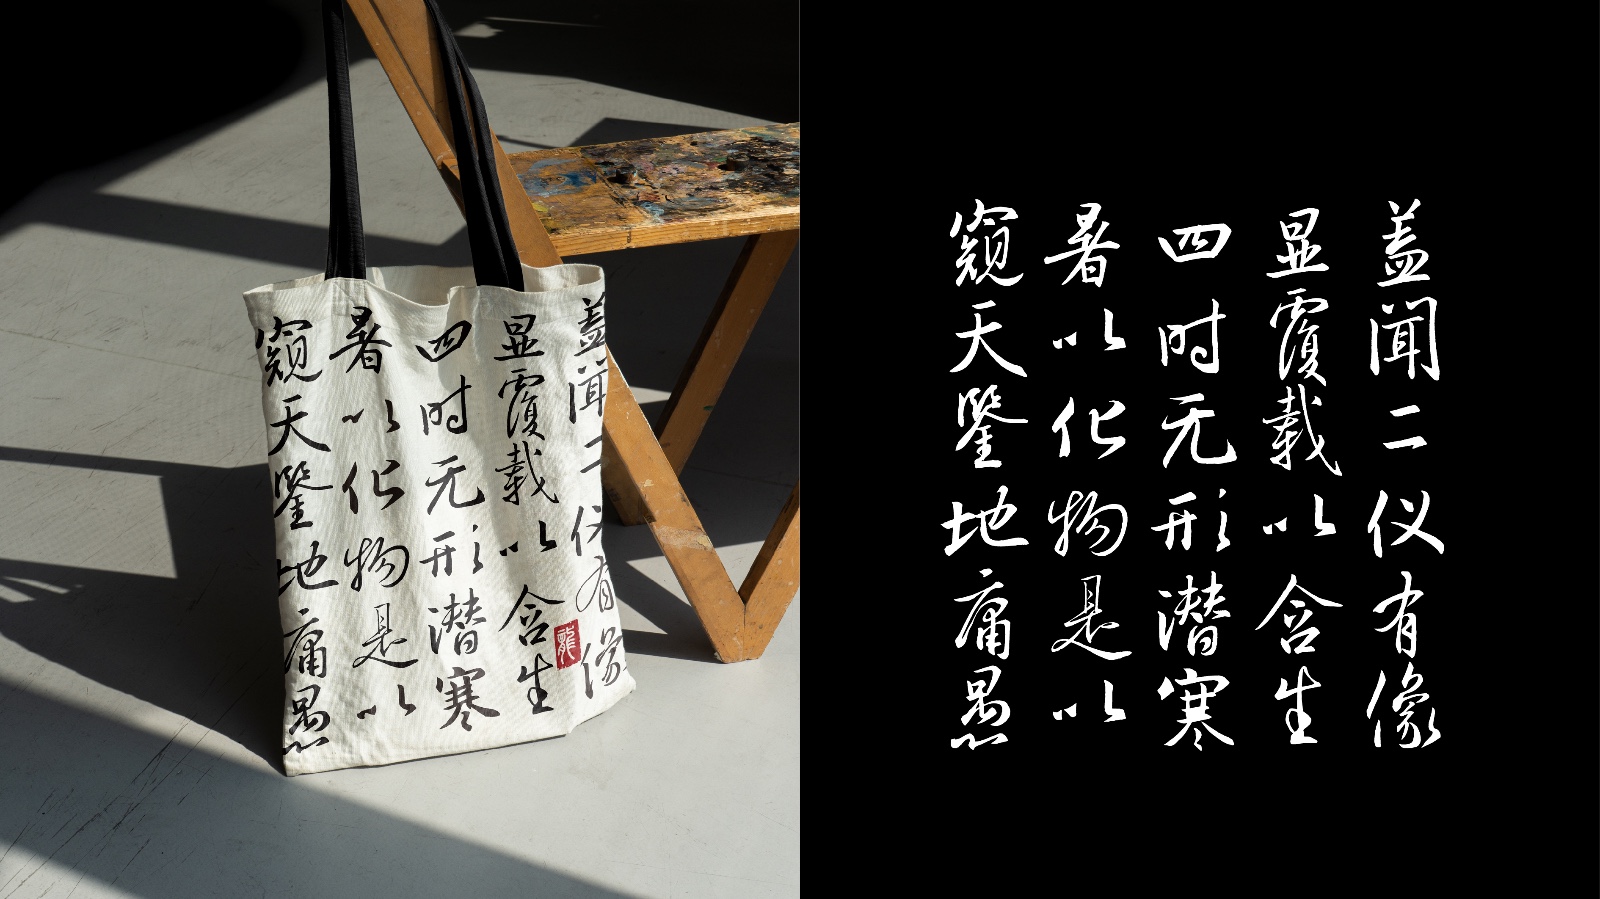 盖闻二仪有像
显覆载以含生
四时无形潜寒
暑以化物是以
窥天鉴地庸愚
龍
盖闻二仪有像
显覆载以含生
四时无形潜寒
暑以化物是以
窥天鉴地庸愚